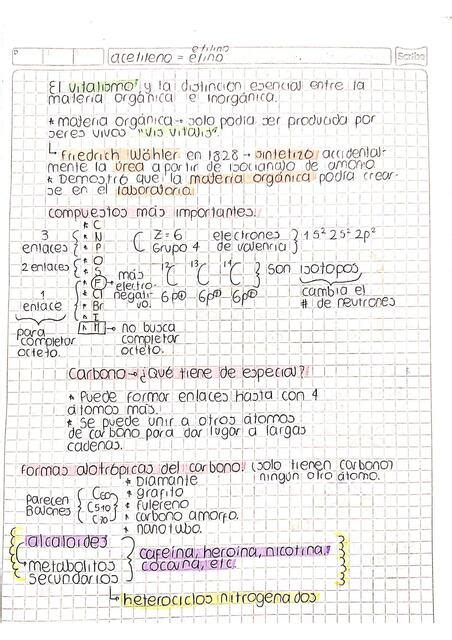 etilino
acetileno = etino
Scribe
El vitalismo y la distinción esencial entre la
materia orgánica e inorgánica.
* materia orgánica → solo podía ser producida por
seres vivos "vis vitalis".
↳ Friedrich Wöhler en 1828 → sintetizó accidental-
mente la úrea a partir de isocianato de amonio
* Demostró que la materia orgánica podía crear-
se en el laboratorio
compuestos más importantes.
3 enlaces { * C * N * P
2 enlaces { * O * S
1 enlace { * F * Cl * Br * I * H
para completar octeto.
F → más electronegativo.
H → no busca completar octeto.
C { Z=6 Grupo 4 electrones de valencia } 1s² 2s² 2p²
¹²C ¹³C ¹⁴C } son isotopos,
6p⊕ 6p⊕ 6p⊕
cambia el
# de neutrones
Carbono → ¿Qué tiene de especial?
* Puede formar enlaces hasta con 4
átomos más.
* Se puede unir a otros átomos
de carbono para dar lugar a largas
cadenas.
Formas alotrópicas del carbono. (solo tienen carbono)
ningún otro átomo.
* Diamante
* grafito
* fulereno
* carbono amorfo.
* nanotubo.
Parecen
Balones { C60 C540 C70
alcaloides
→ metabolitos
secundarios
} cafeína, heroína, nicotina,
cocaína, etc.
↳ heterociclos nitrogenados